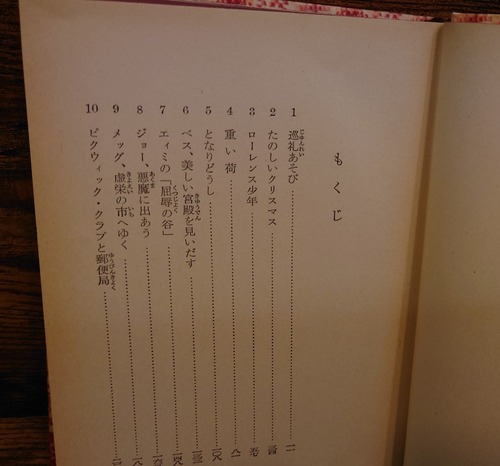 もくじ
1 巡礼あそび
2 たのしいクリスマス
3 ローレンス少年
4 重い荷
5 となりどうし
6 ベス、美しい宮殿を見いだす
7 エィミの「屈辱の谷」
8 ジョー、悪魔に出あう
9 メッグ、虚栄の市へゆく
10 ピクウィック・クラブと郵便局